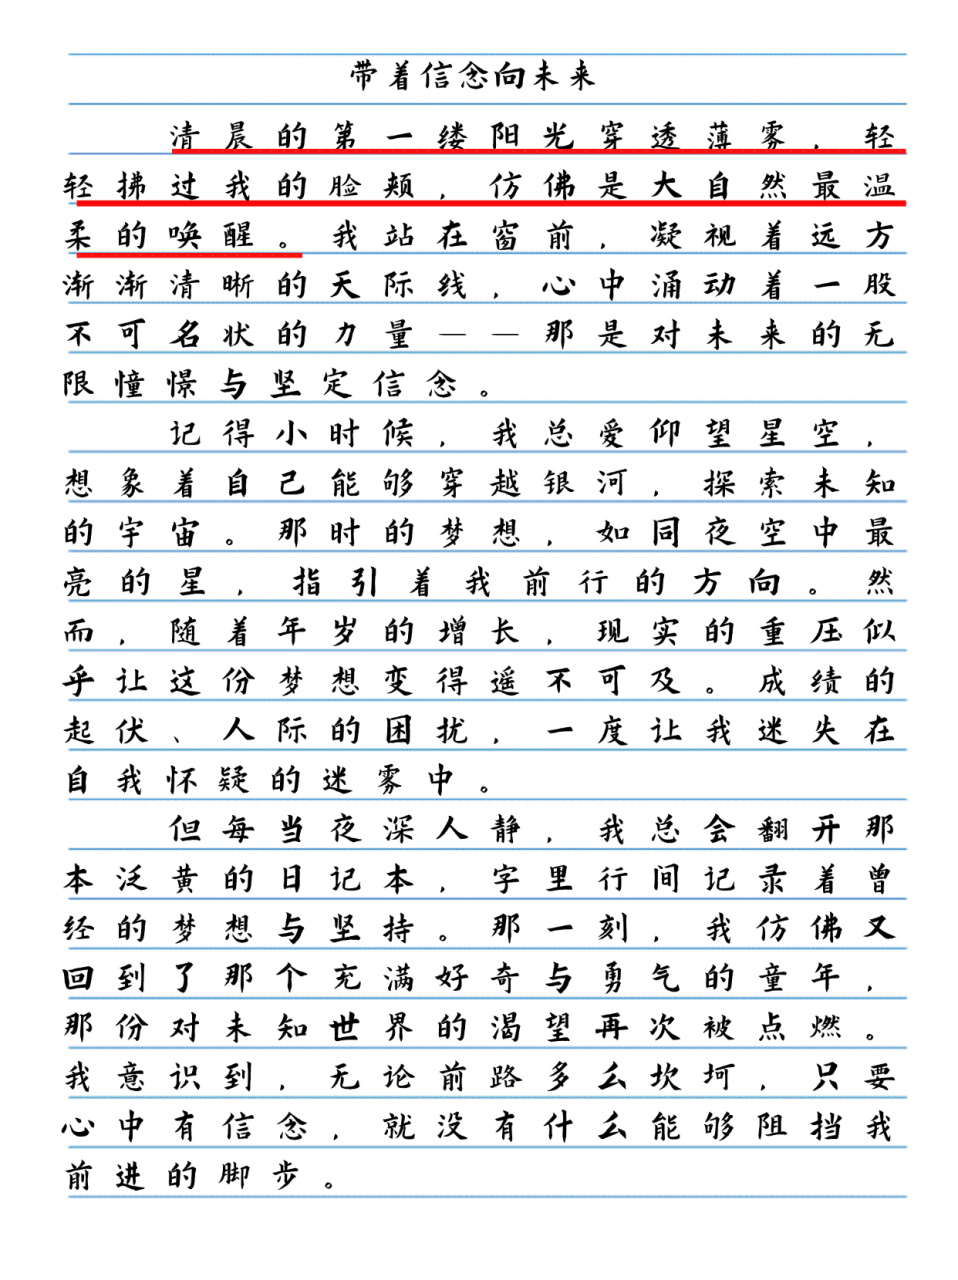 带着信念向未来
清晨的第一缕阳光穿透薄雾，轻
轻拂过我的脸颊，仿佛是大自然最温
柔的唤醒。我站在窗前，凝视着远方
渐渐清晰的天际线，心中涌动着一股
不可名状的力量——那是对未来的无
限憧憬与坚定信念。
记得小时候，我总爱仰望星空，
想象着自己能够穿越银河，探索未知
的宇宙。那时的梦想，如同夜空中最
亮的星，指引着我前行的方向。然
而，随着年岁的增长，现实的重压似
乎让这份梦想变得遥不可及。成绩的
起伏、人际的困扰，一度让我迷失在
自我怀疑的迷雾中。
但每当夜深人静，我总会翻开那
本泛黄的日记本，字里行间记录着曾
经的梦想与坚持。那一刻，我仿佛又
回到了那个充满好奇与勇气的童年，
那份对未知世界的渴望再次被点燃。
我意识到，无论前路多么坎坷，只要
心中有信念，就没有什么能够阻挡我
前进的脚步。